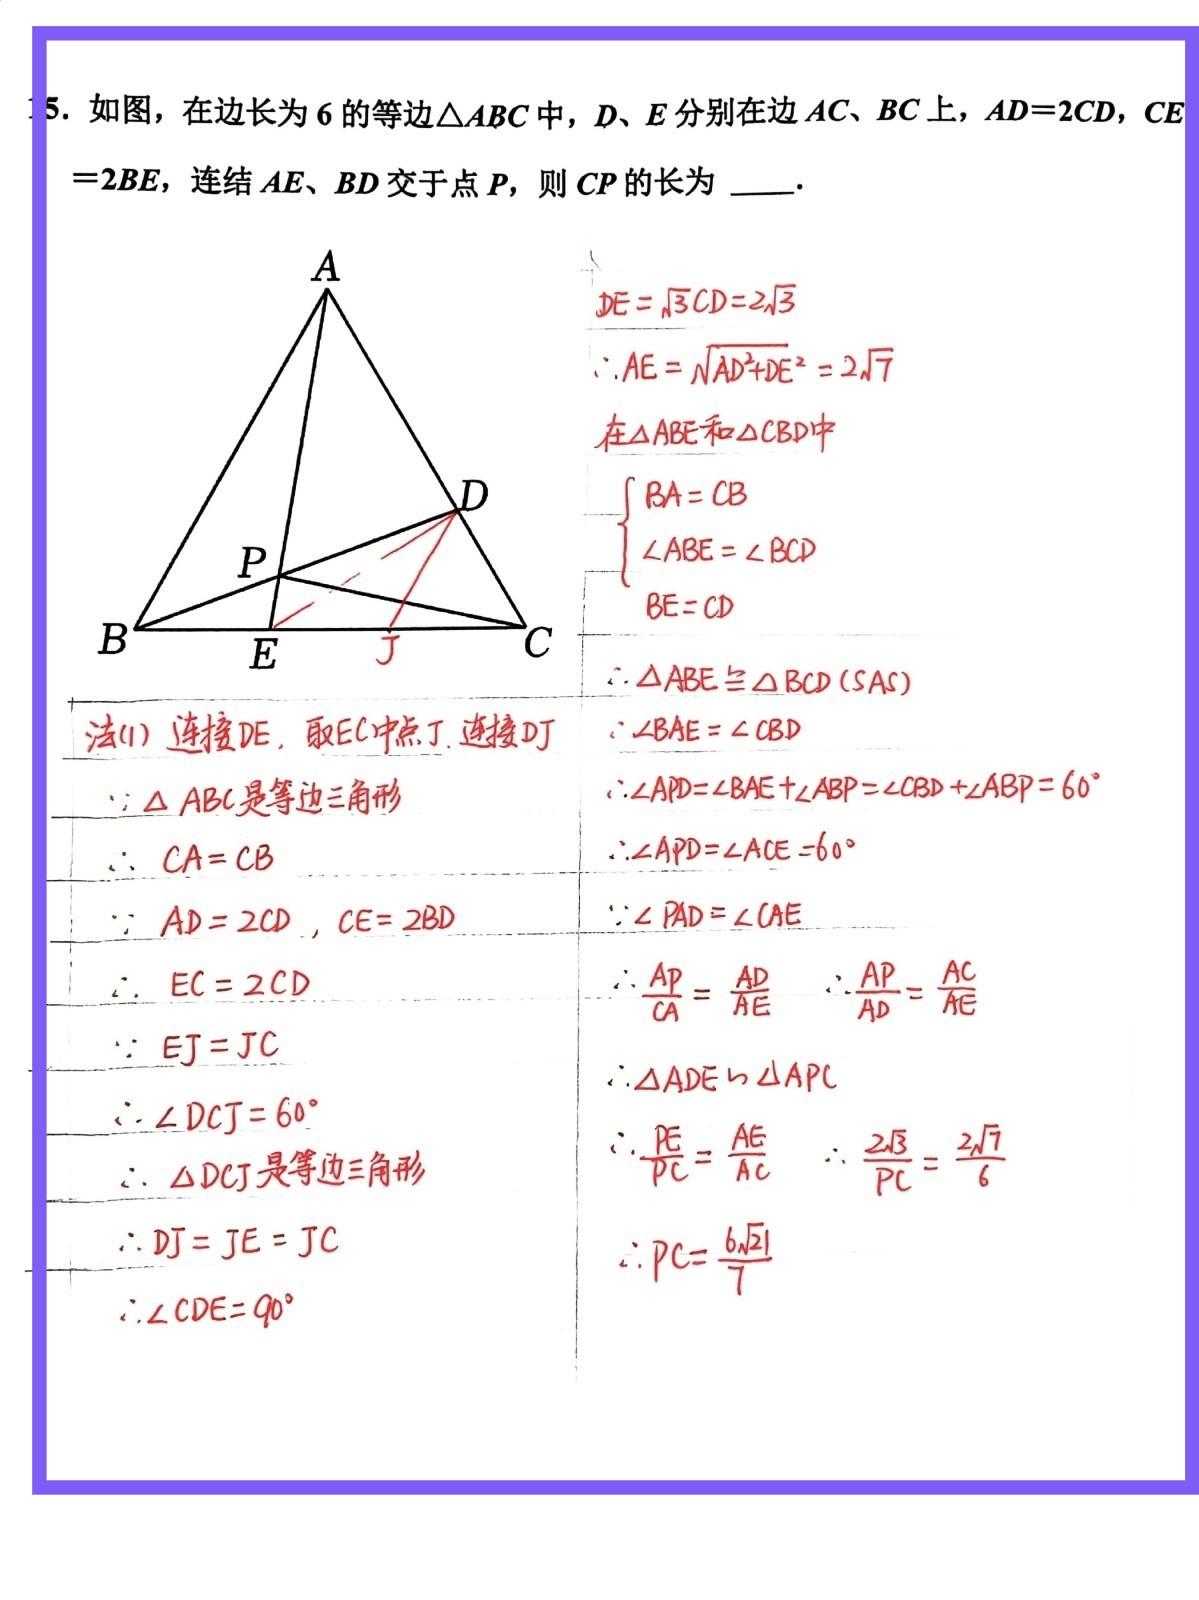 15. 如图，在边长为 6 的等边△ABC 中，D、E 分别在边 AC、BC 上，AD＝2CD，CE
＝2BE，连结 AE、BD 交于点 P，则 CP 的长为 ____.
A
D
P
B
E
J
C
法(1) 连接DE, 取EC中点J. 连接DJ
∵ △ ABC是等边三角形
∴ CA = CB
∵ AD = 2CD , CE = 2BD
∴ EC = 2CD
∵ EJ = JC
∴ ∠DCJ = 60°
∴ △DCJ是等边三角形
∴ DJ = JE = JC
∴∠CDE = 90°
DE = √3CD = 2√3
∴AE = √AD²+DE² = 2√7
在△ABE和△CBD中
BA = CB
∠ABE = ∠BCD
BE = CD
∴ △ABE ≌ △BCD (SAS)
∴∠BAE = ∠CBD
∴∠APD=∠BAE+∠ABP=∠CBD+∠ABP=60°
∴∠APD=∠ACE=60°
∵∠PAD=∠CAE
∴ AP/CA = AD/AE ∴ AP/AD = AC/AE
∴△ADE∽△APC
∴ PE/PC = AE/AC ∴ 2√3/PC = 2√7/6
∴PC= 6√21/7